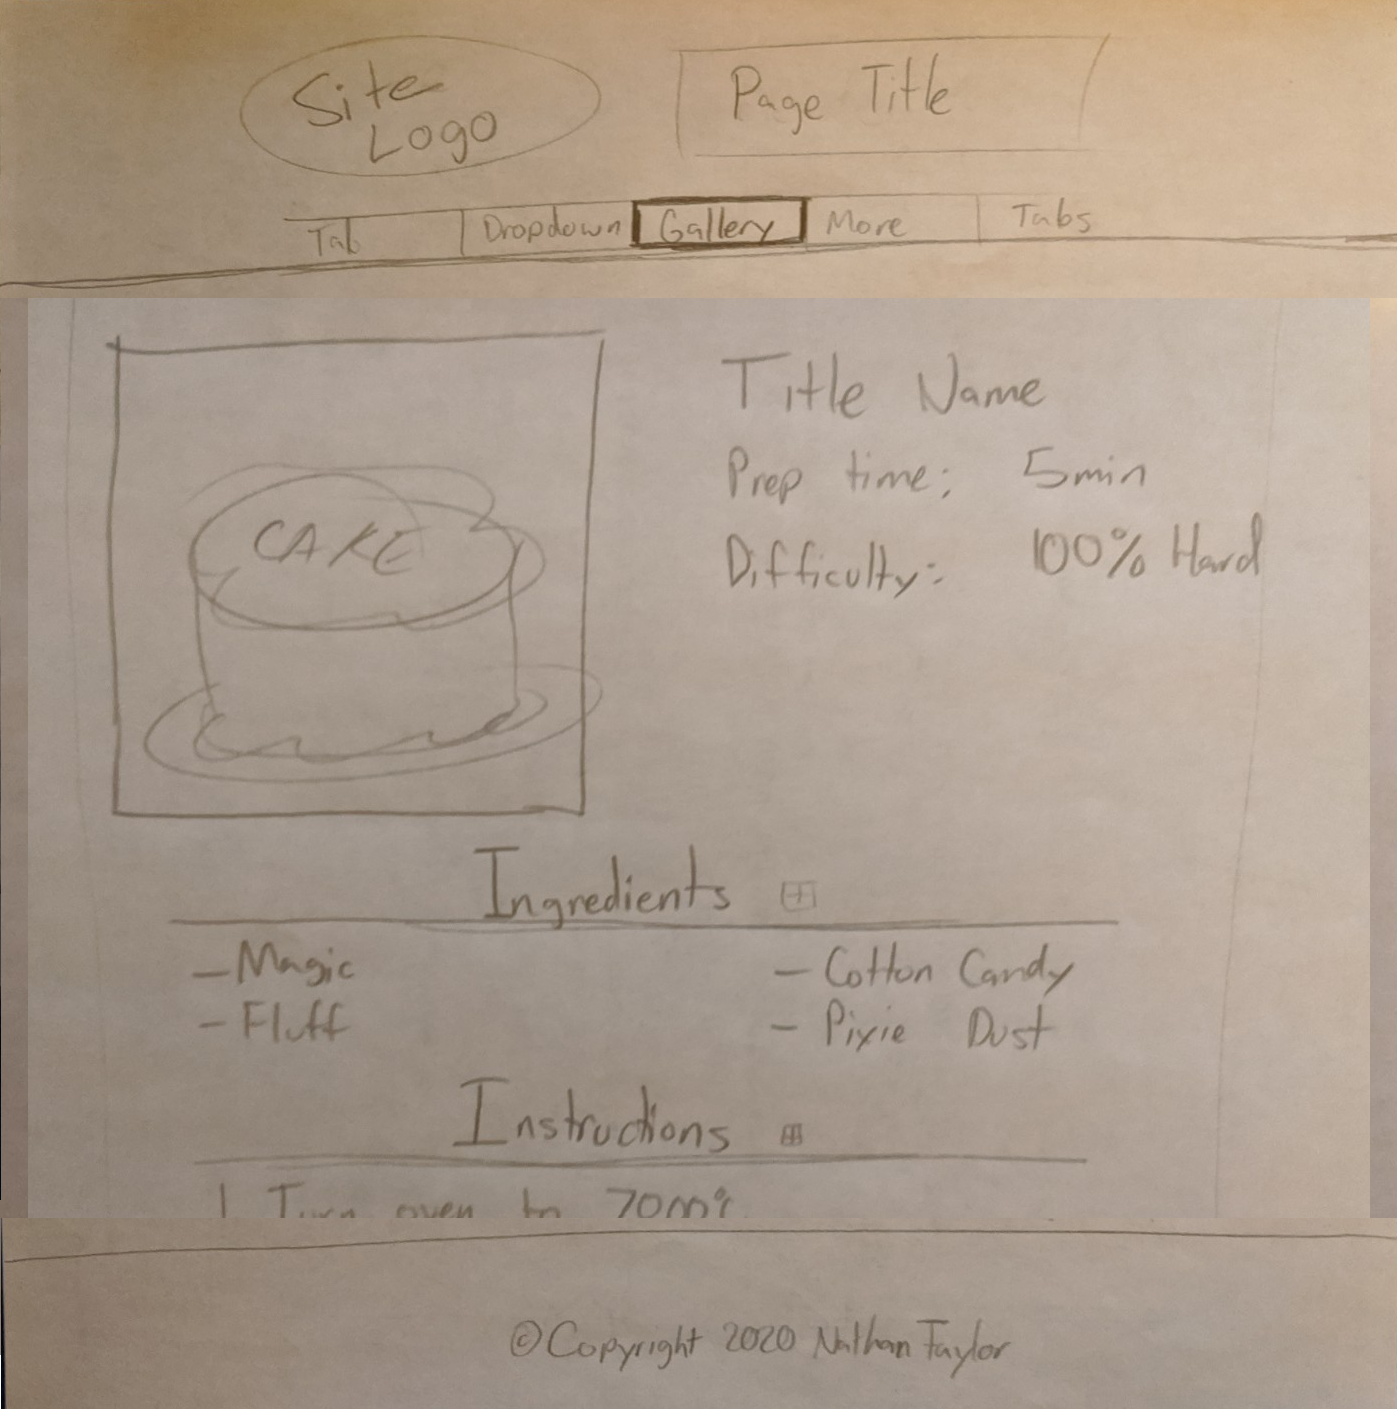 Site
Logo
Page Title
Tab Dropdown Gallery More Tabs
CAKE
Title Name
Prep time: 5min
Difficulty: 100% Hard
Ingredients
- Magic
- Fluff
- Cotton Candy
- Pixie Dust
Instructions
1 Turn oven to
© Copyright 2020 Nathan Taylor